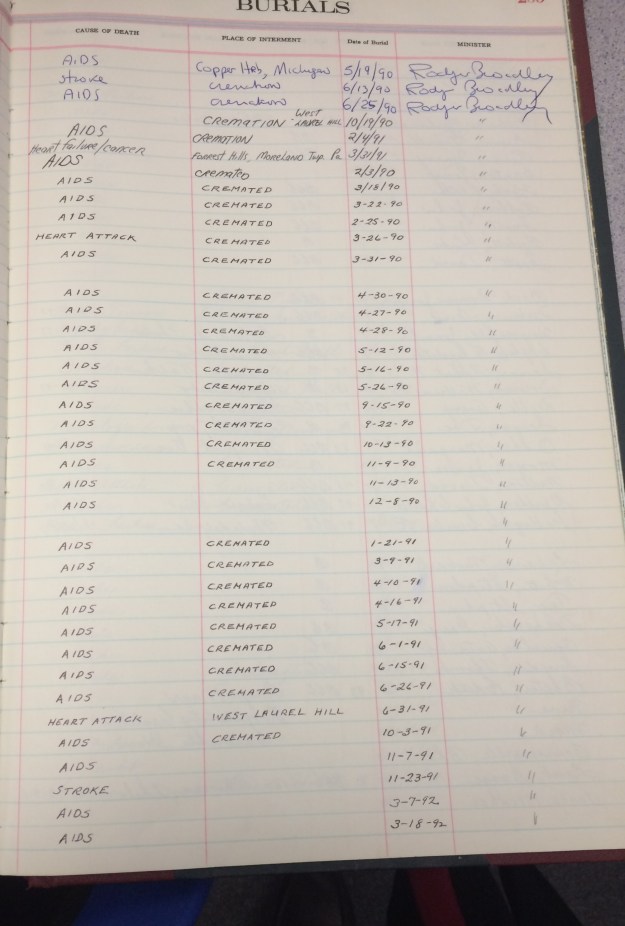 BURIALS
CAUSE OF DEATH PLACE OF INTERMENT Date of Burial MINISTER
AIDS Copper Hob, Michigan 5/19/90 Rodger Broadley
Stroke cremation 6/13/90 Rodger Broadley
AIDS cremation 6/25/90 Rodger Broadley
CREMATION - WEST LAUREL HILL 10/19/90 "
AIDS CREMATION 2/4/91 "
Heart failure/cancer Forrest Hills, Moreland Twp. Pa 3/21/91 "
AIDS cremated 2/3/90 "
AIDS CREMATED 3/18/90 "
AIDS CREMATED 3-22-90 "
AIDS CREMATED 2-25-90 "
HEART ATTACK CREMATED 3-26-90 "
AIDS CREMATED 3-31-90 "
AIDS CREMATED 4-30-90 "
AIDS CREMATED 4-27-90 "
AIDS CREMATED 4-28-90 "
AIDS CREMATED 5-12-90 "
AIDS CREMATED 5-16-90 "
AIDS CREMATED 5-26-90 "
AIDS CREMATED 9-15-90 "
AIDS CREMATED 9-22-90 "
AIDS CREMATED 10-13-90 "
AIDS CREMATED 11-9-90 "
AIDS 11-13-90 "
AIDS 12-8-90 "
"
AIDS CREMATED 1-21-91 "
AIDS CREMATED 3-9-91 "
AIDS CREMATED 4-10-91 "
AIDS CREMATED 4-16-91 "
AIDS CREMATED 5-17-91 "
AIDS CREMATED 6-1-91 "
AIDS CREMATED 6-15-91 "
AIDS CREMATED 6-26-91 "
HEART ATTACK WEST LAUREL HILL 6-31-91 "
AIDS CREMATED 10-3-91 "
AIDS 11-7-91 "
STROKE 11-23-91 "
AIDS 3-7-92 "
AIDS 3-18-92 "